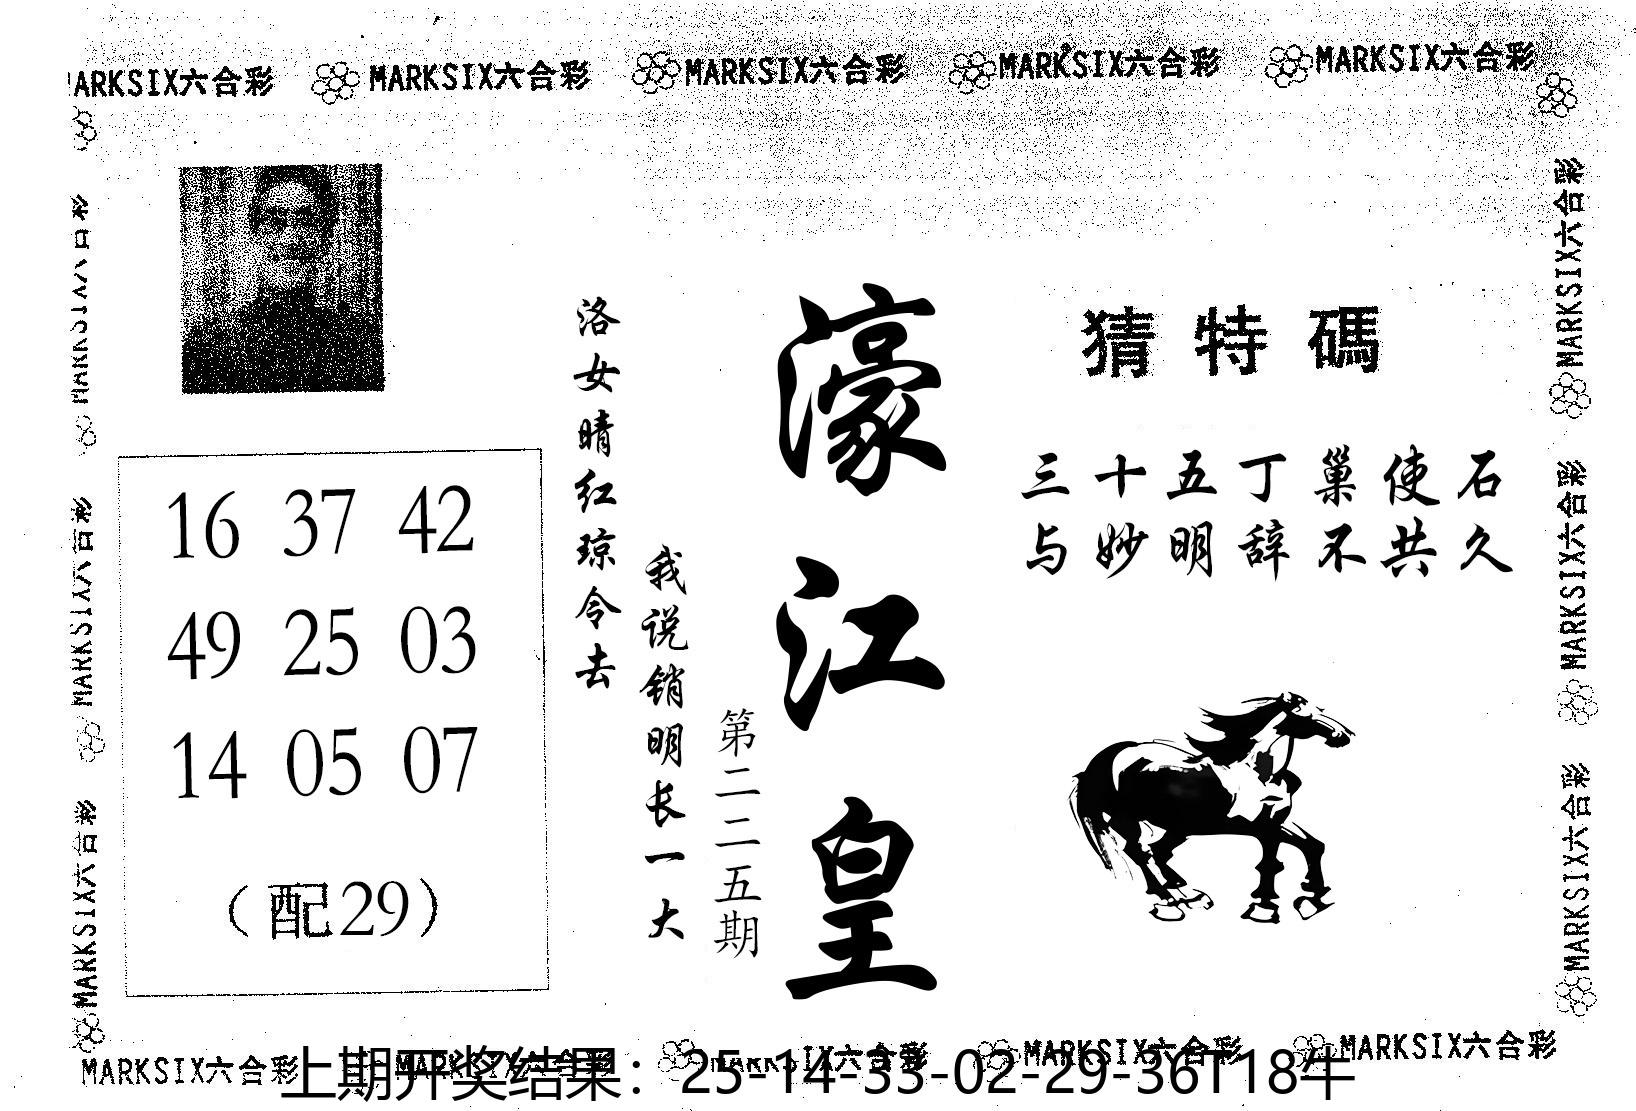 MARKSIX六合彩 MARKSIX六合彩 MARKSIX六合彩 MARKSIX六合彩 MARKSIX六合彩
猜特碼
三十五丁巢使石
与妙明辞不共久
濠江皇
第二二五期
我说销明长一大
洛女晴红琼令去
16 37 42
49 25 03
14 05 07
（配29）
MARKSIX六合彩
MARKSIX六合彩
MARKSIX六合彩
MARKSIX六合彩
MARKSIX六合彩
MARKSIX六合彩
MARKSIX六合彩 MARKSIX六合彩 MARKSIX六合彩 MARKSIX六合彩 MARKSIX六合彩
上期开奖结果：25-14-33-02-29-36T18牛